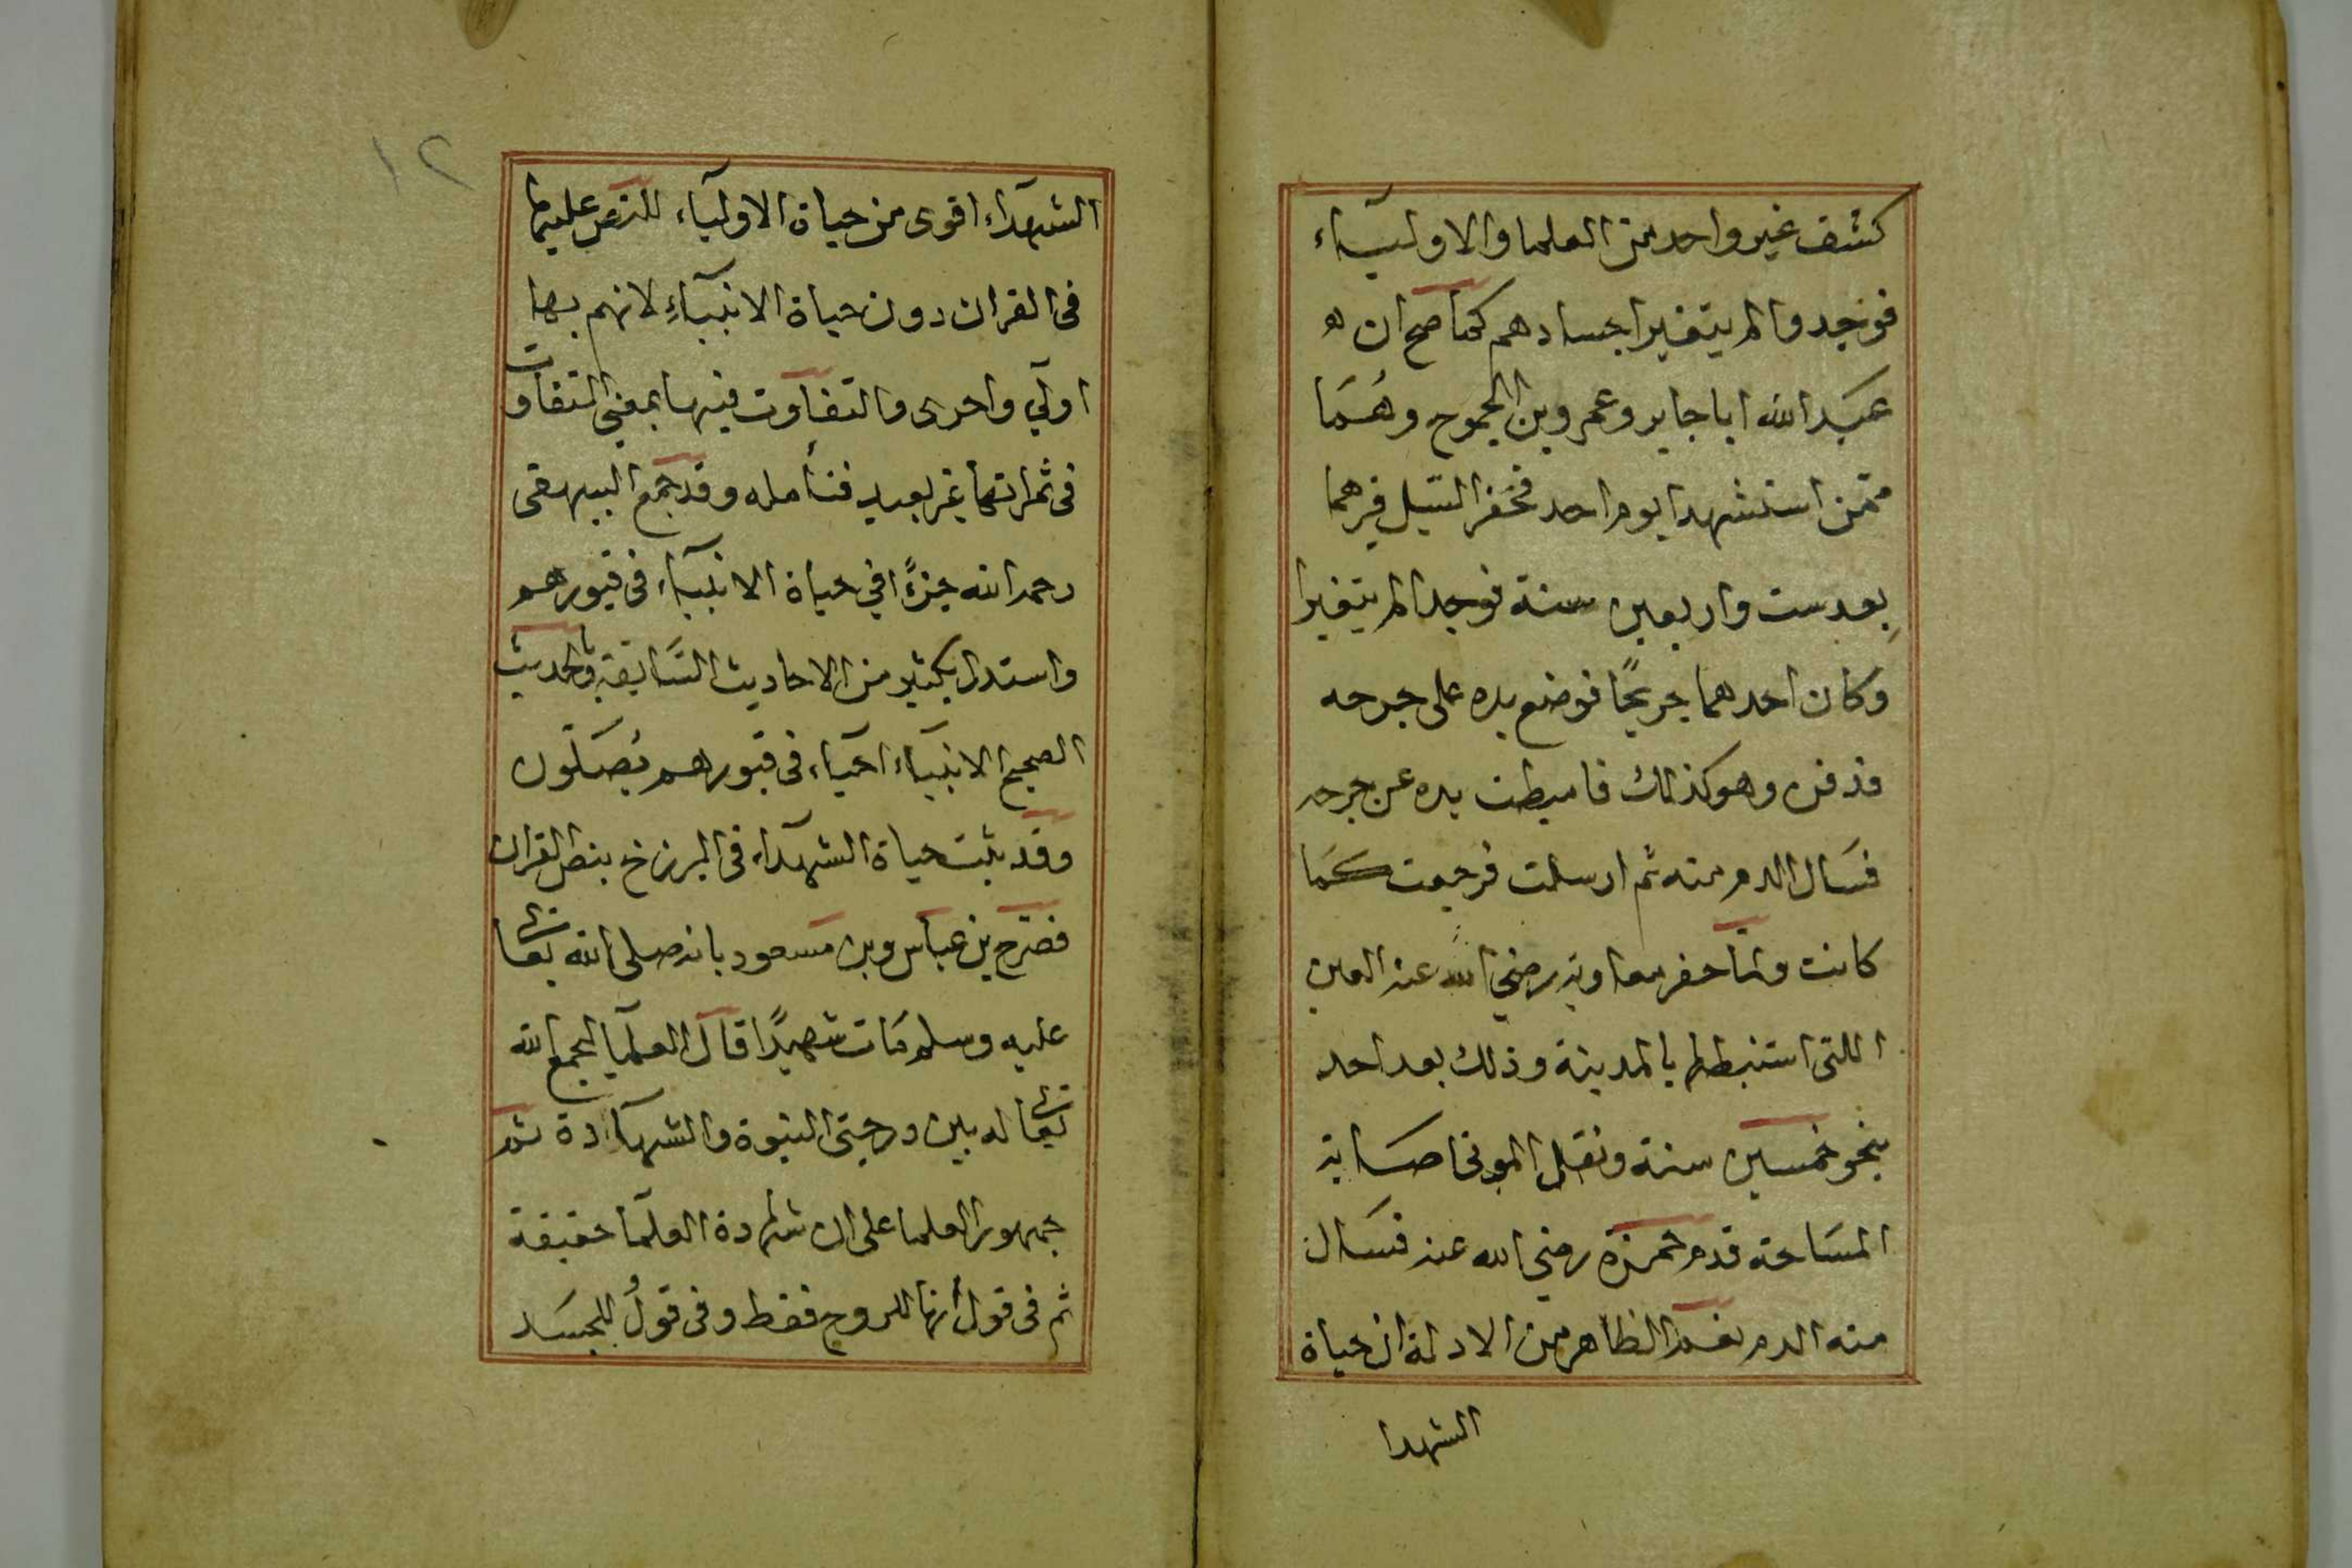 كشف غير واحد من العلما والاوليآء
فوجدوا لم يتغير اجسادهم كما صح ان
عبد الله ابا جابر وعمرو بن الجموح وهما
ممن استشهد ايوم احد فحفر السيل قبرهما
بعد ست واربعين سنة فوجدا لم يتغيرا
وكان احدهما جريحًا فوضع يده على جرحه
فدفن وهو كذلك فاميطت يده عن جرحه
فسال الدم منه ثم ارسلت فرجعت كما
كانت ولما حفر معاوية رضي الله عنه العين
اللتى استنبطها بالمدينة وذلك بعد احد
بنحو خمسين سنة ونقل الموتى اصابة
المساحة قدم حمزة رضي الله عنه فسال
منه الدم نعم الظاهر من الادلة ان حياة
الشهدا
١٢
الشهدآء اقوى من حياة الاوليآء للنص عليها
في القران دون حياة الانبيآء لانهم بها
اولي واحرى والتفاوت فيها بمعني التفاوت
في ثمراتها غير بعيد فتأمله وقد جمع البيهقى
رحمه الله جزءًا في حياة الانبيآء في قبورهم
واستدل بكثير من الاحاديث السابقة وبالحديث
الصحيح الانبيآء احيآء في قبورهم يصلون
وقد ثبت حياة الشهدآء في البرزخ بنص القران
فصرح بن عباس وبن مسعود بانه صلى الله تعالى
عليه وسلم مات شهيدًا قال العلما ليجمع الله
تعالى له بين درجتي النبوة والشهادة ثم
جمهور العلما على ان شهادة العلما حقيقة
ثم في قول أنها للروح فقط وفي قول للجسد